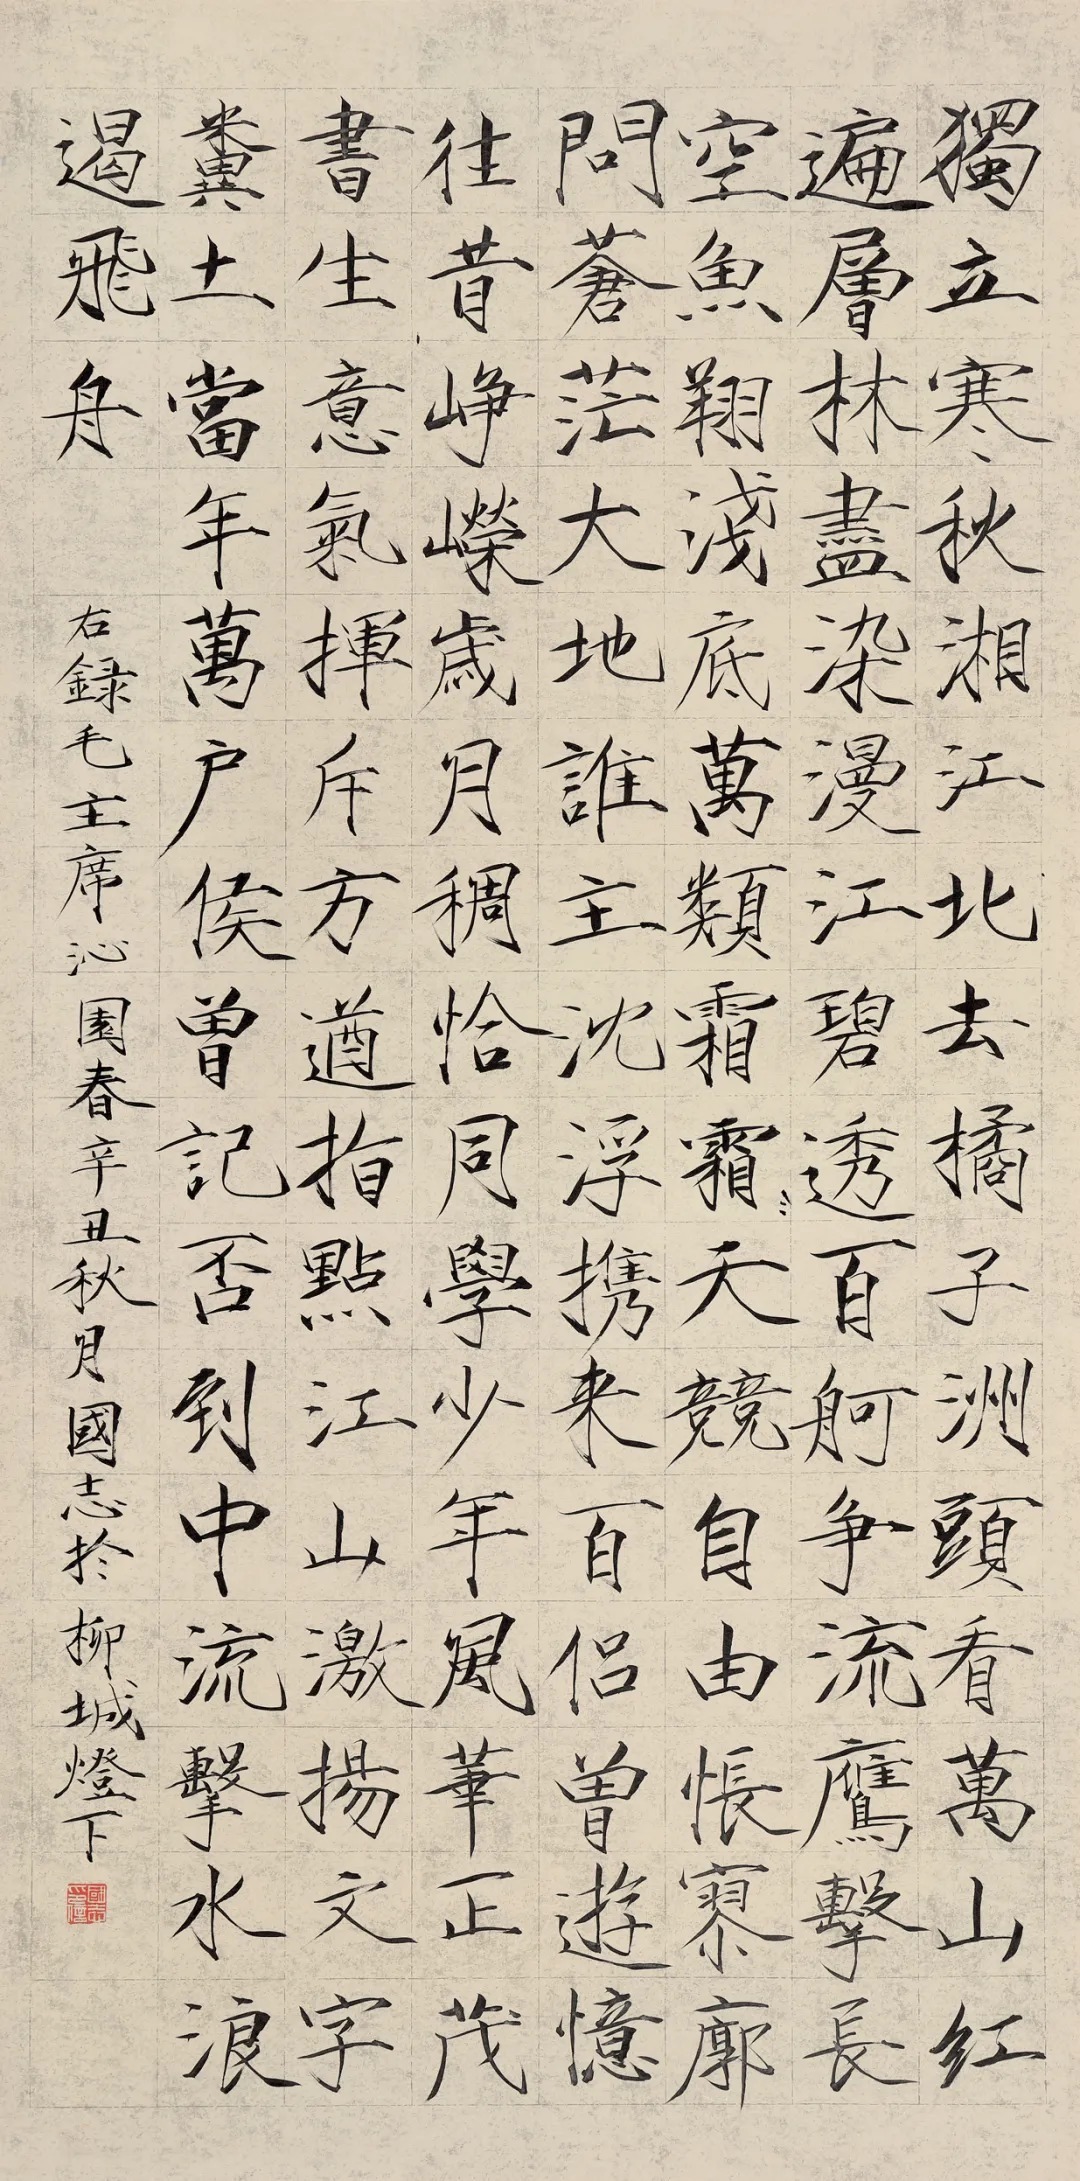 獨立寒秋湘江北去橘子洲頭看萬山紅
遍層林盡染漫江碧透百舸争流鷹擊長
空魚翔淺底萬類霜霜天競自由悵寥廓
問蒼茫大地誰主沈浮携来百侣曾遊憶
往昔峥嶸歲月稠恰同學少年風華正茂
書生意氣揮斥方遒指點江山激揚文字
糞土當年萬户侯曾記否到中流擊水浪
遏飛舟
右録毛主席沁園春辛丑秋月國志於柳城燈下